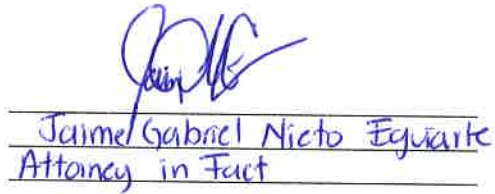 Jaime Gabriel Nieto Eguiarte
Attorney in Fact